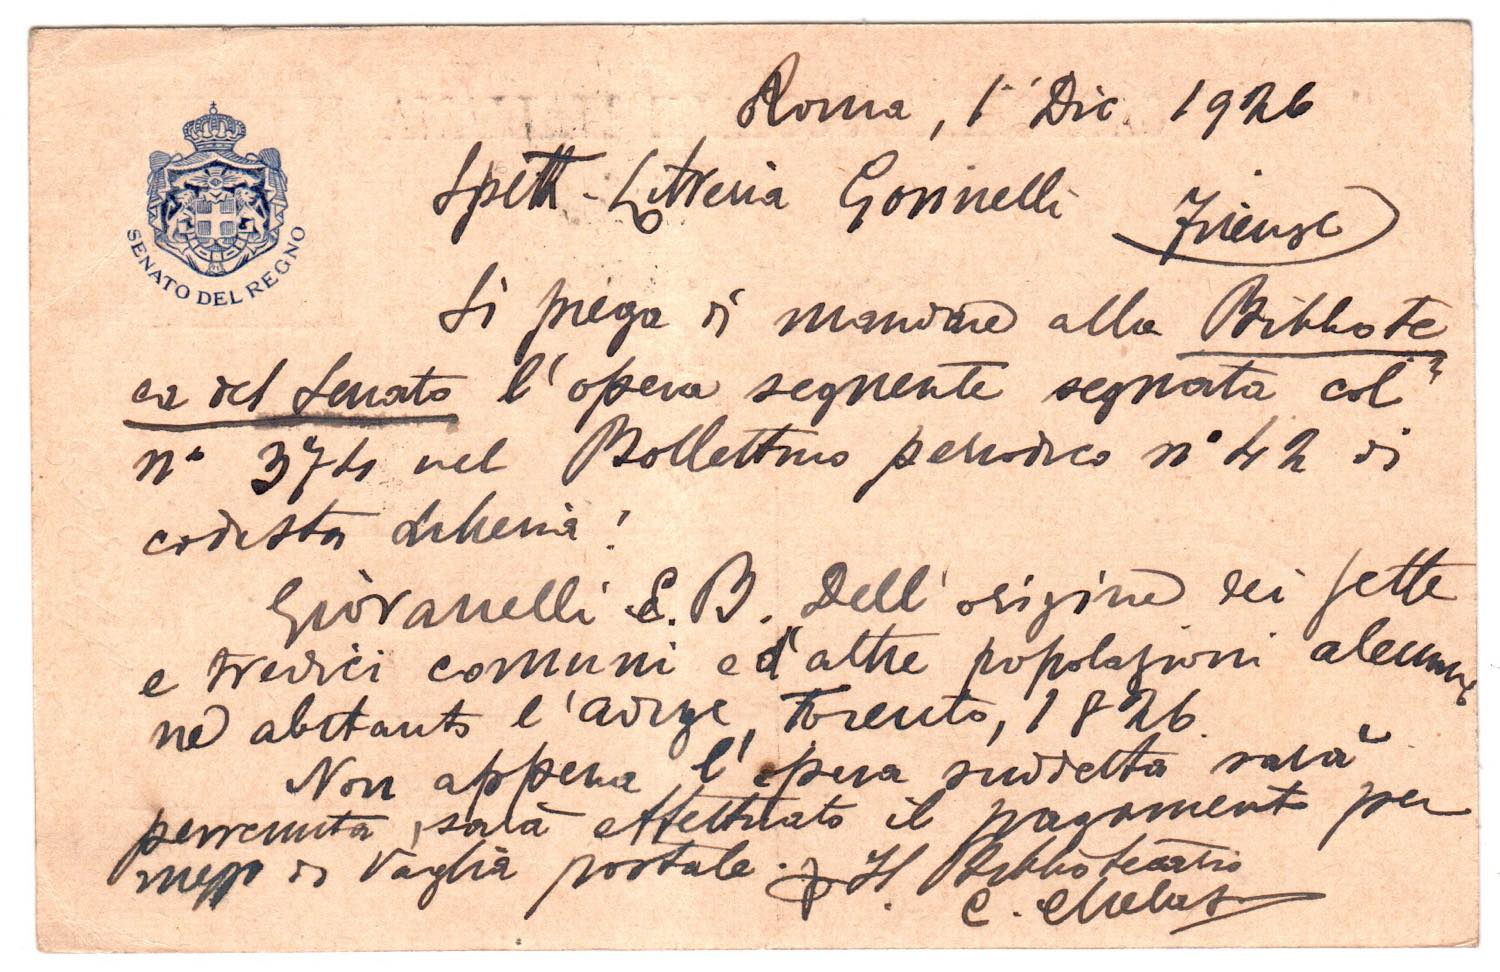 SENATO DEL REGNO
Roma, 1° Dic. 1926
Spett. Libreria Gonnelli
Firenze
Si prega di mandare alla Bibliote
ca del Senato l'opera seguente segnata col
n° 374 nel Bollettino periodico n° 42 di
codesta Libreria:
Giovanelli E. B. Dell'origine dei sette
e tredici comuni e d'altre popolazioni aleman
ne abitanti l'Adige, Trento, 1826.
Non appena l'opera suddetta sarà
pervenuta, sarà effettuato il pagamento per
mezzo di vaglia postale.
Il Bibliotecario
C.